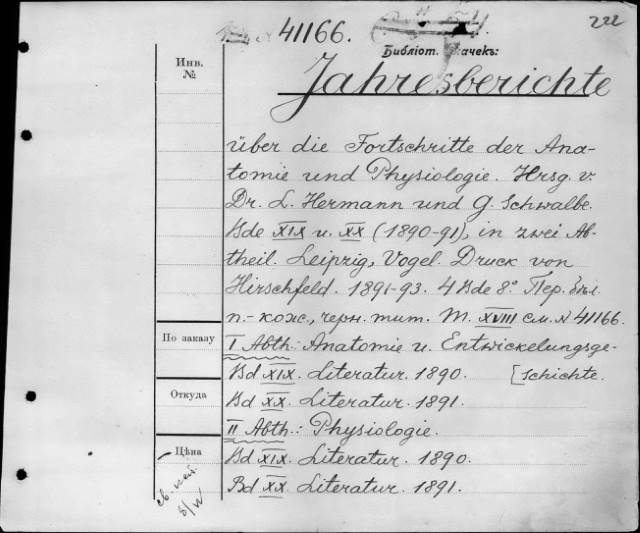 № 41166.
222
Библіот. значекъ:
Инв.
№
Jahresberichte
über die Fortschritte der Ana-
tomie und Physiologie. Hrsg. v.
Dr. L. Hermann und G. Schwalbe.
Bde XIX u. XX (1890-91), in zwei Ab-
theil. Leipzig, Vogel. Druck von
Hirschfeld. 1891-93. 4 Bde 8° Пер. бѣл.
п.-кож., черн. тит. Т. XVIII см. № 41166.
По заказу
I Abth.: Anatomie u. Entwickelungsge-
Bd XIX. Literatur. 1890. [schichte.
Откуда
Bd XX. Literatur. 1891.
II Abth.: Physiologie.
Цѣна
Bd XIX. Literatur. 1890.
Bd XX. Literatur. 1891.